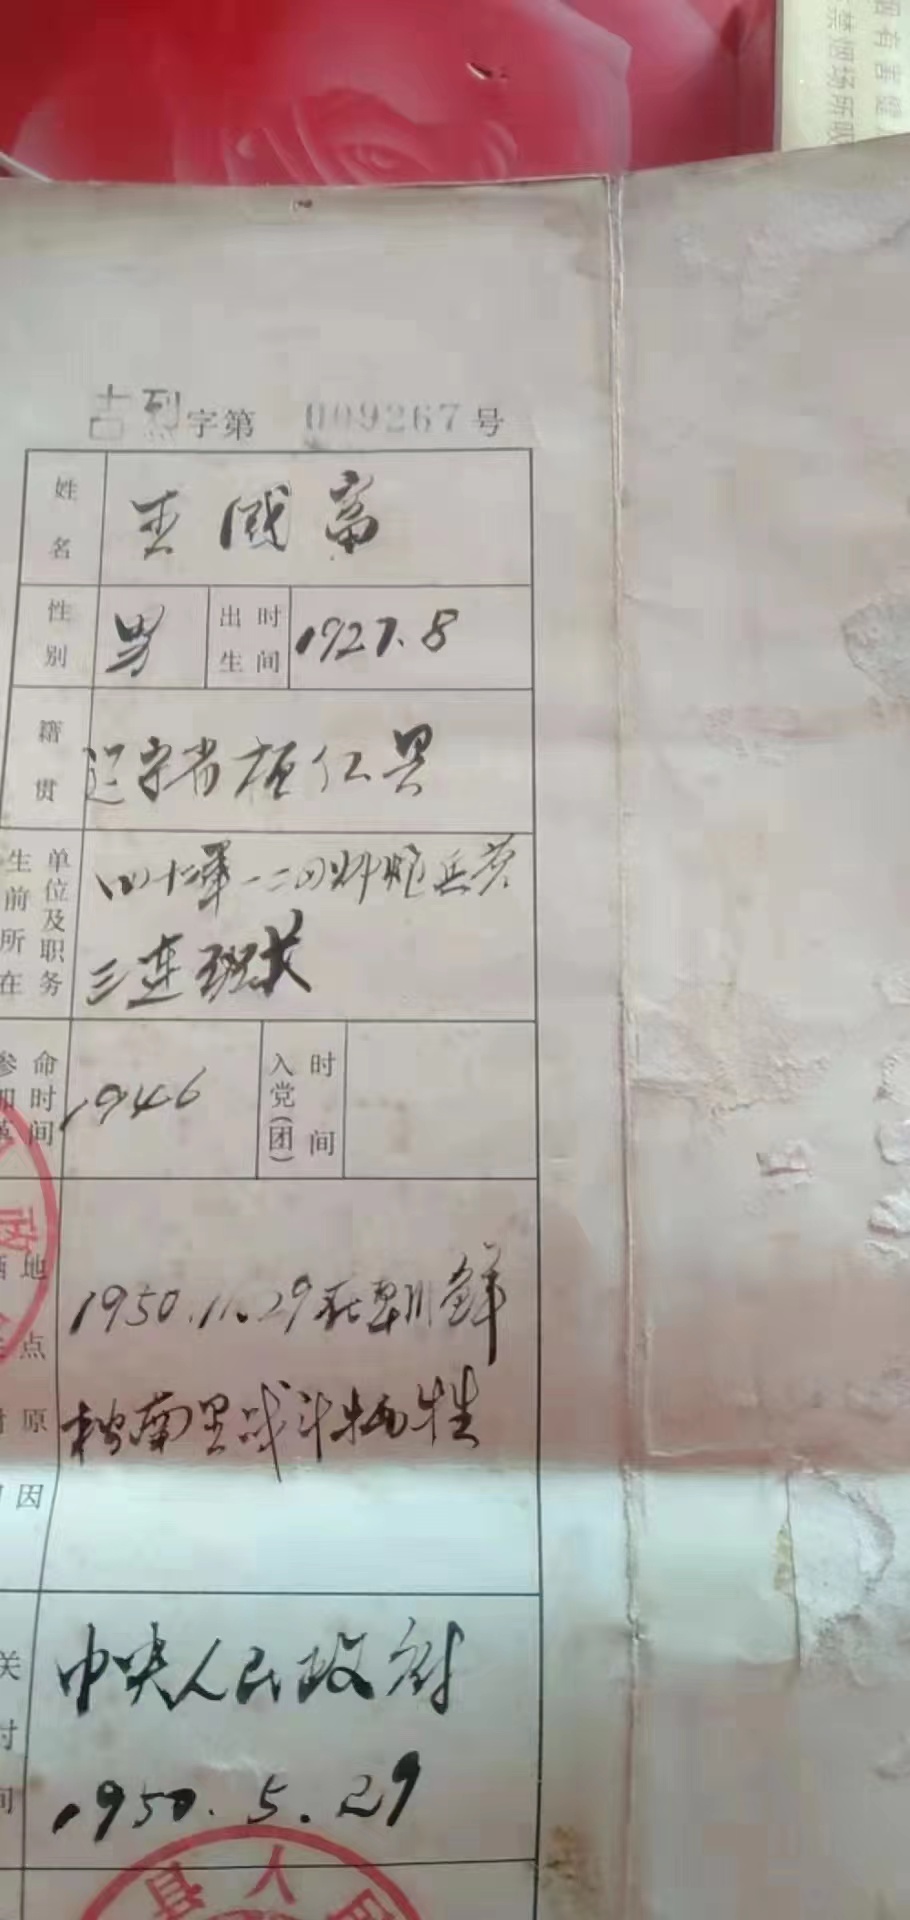 吉烈字第 009267 号
姓名 王国富
性别 男 出生时间 1927.8
籍贯 辽宁省桓仁县
生前所在单位及职务 四十二军一二四师炮兵营
三连班长
参加革命时间 1946 入党(团)时间
地点 原因
1950.11.29在朝鲜
南里战斗牺牲
关 时间
中央人民政府
1950.5.29
县人
政
烟有害健
禁烟场所吸